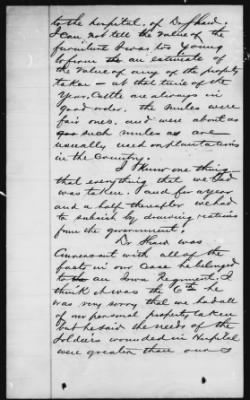 to the hospital, of Dr Shaw.
I can not tell the value of the
furniture I was too young
to form the an estimate of
the value of any of the property
taken - at that time of the
year, Cattle are always in
good order. the mules were
fair ones, and were about as
goo such mules as are
usually used on plantations
in the Country.
I Know one thing
that everything that we had
was taken. and for a year
and a half thereafter we had
to subsist by drawing rations
from the government.
Dr Shaw was
Conversant with all of the
facts in our case he belonged
to the an Iowa Regiment. I
think it was the 6th he
was very sorry that we had all
of our personal property taken
but he said the needs of the
Soldiers wounded in Hospital
were greater than ours